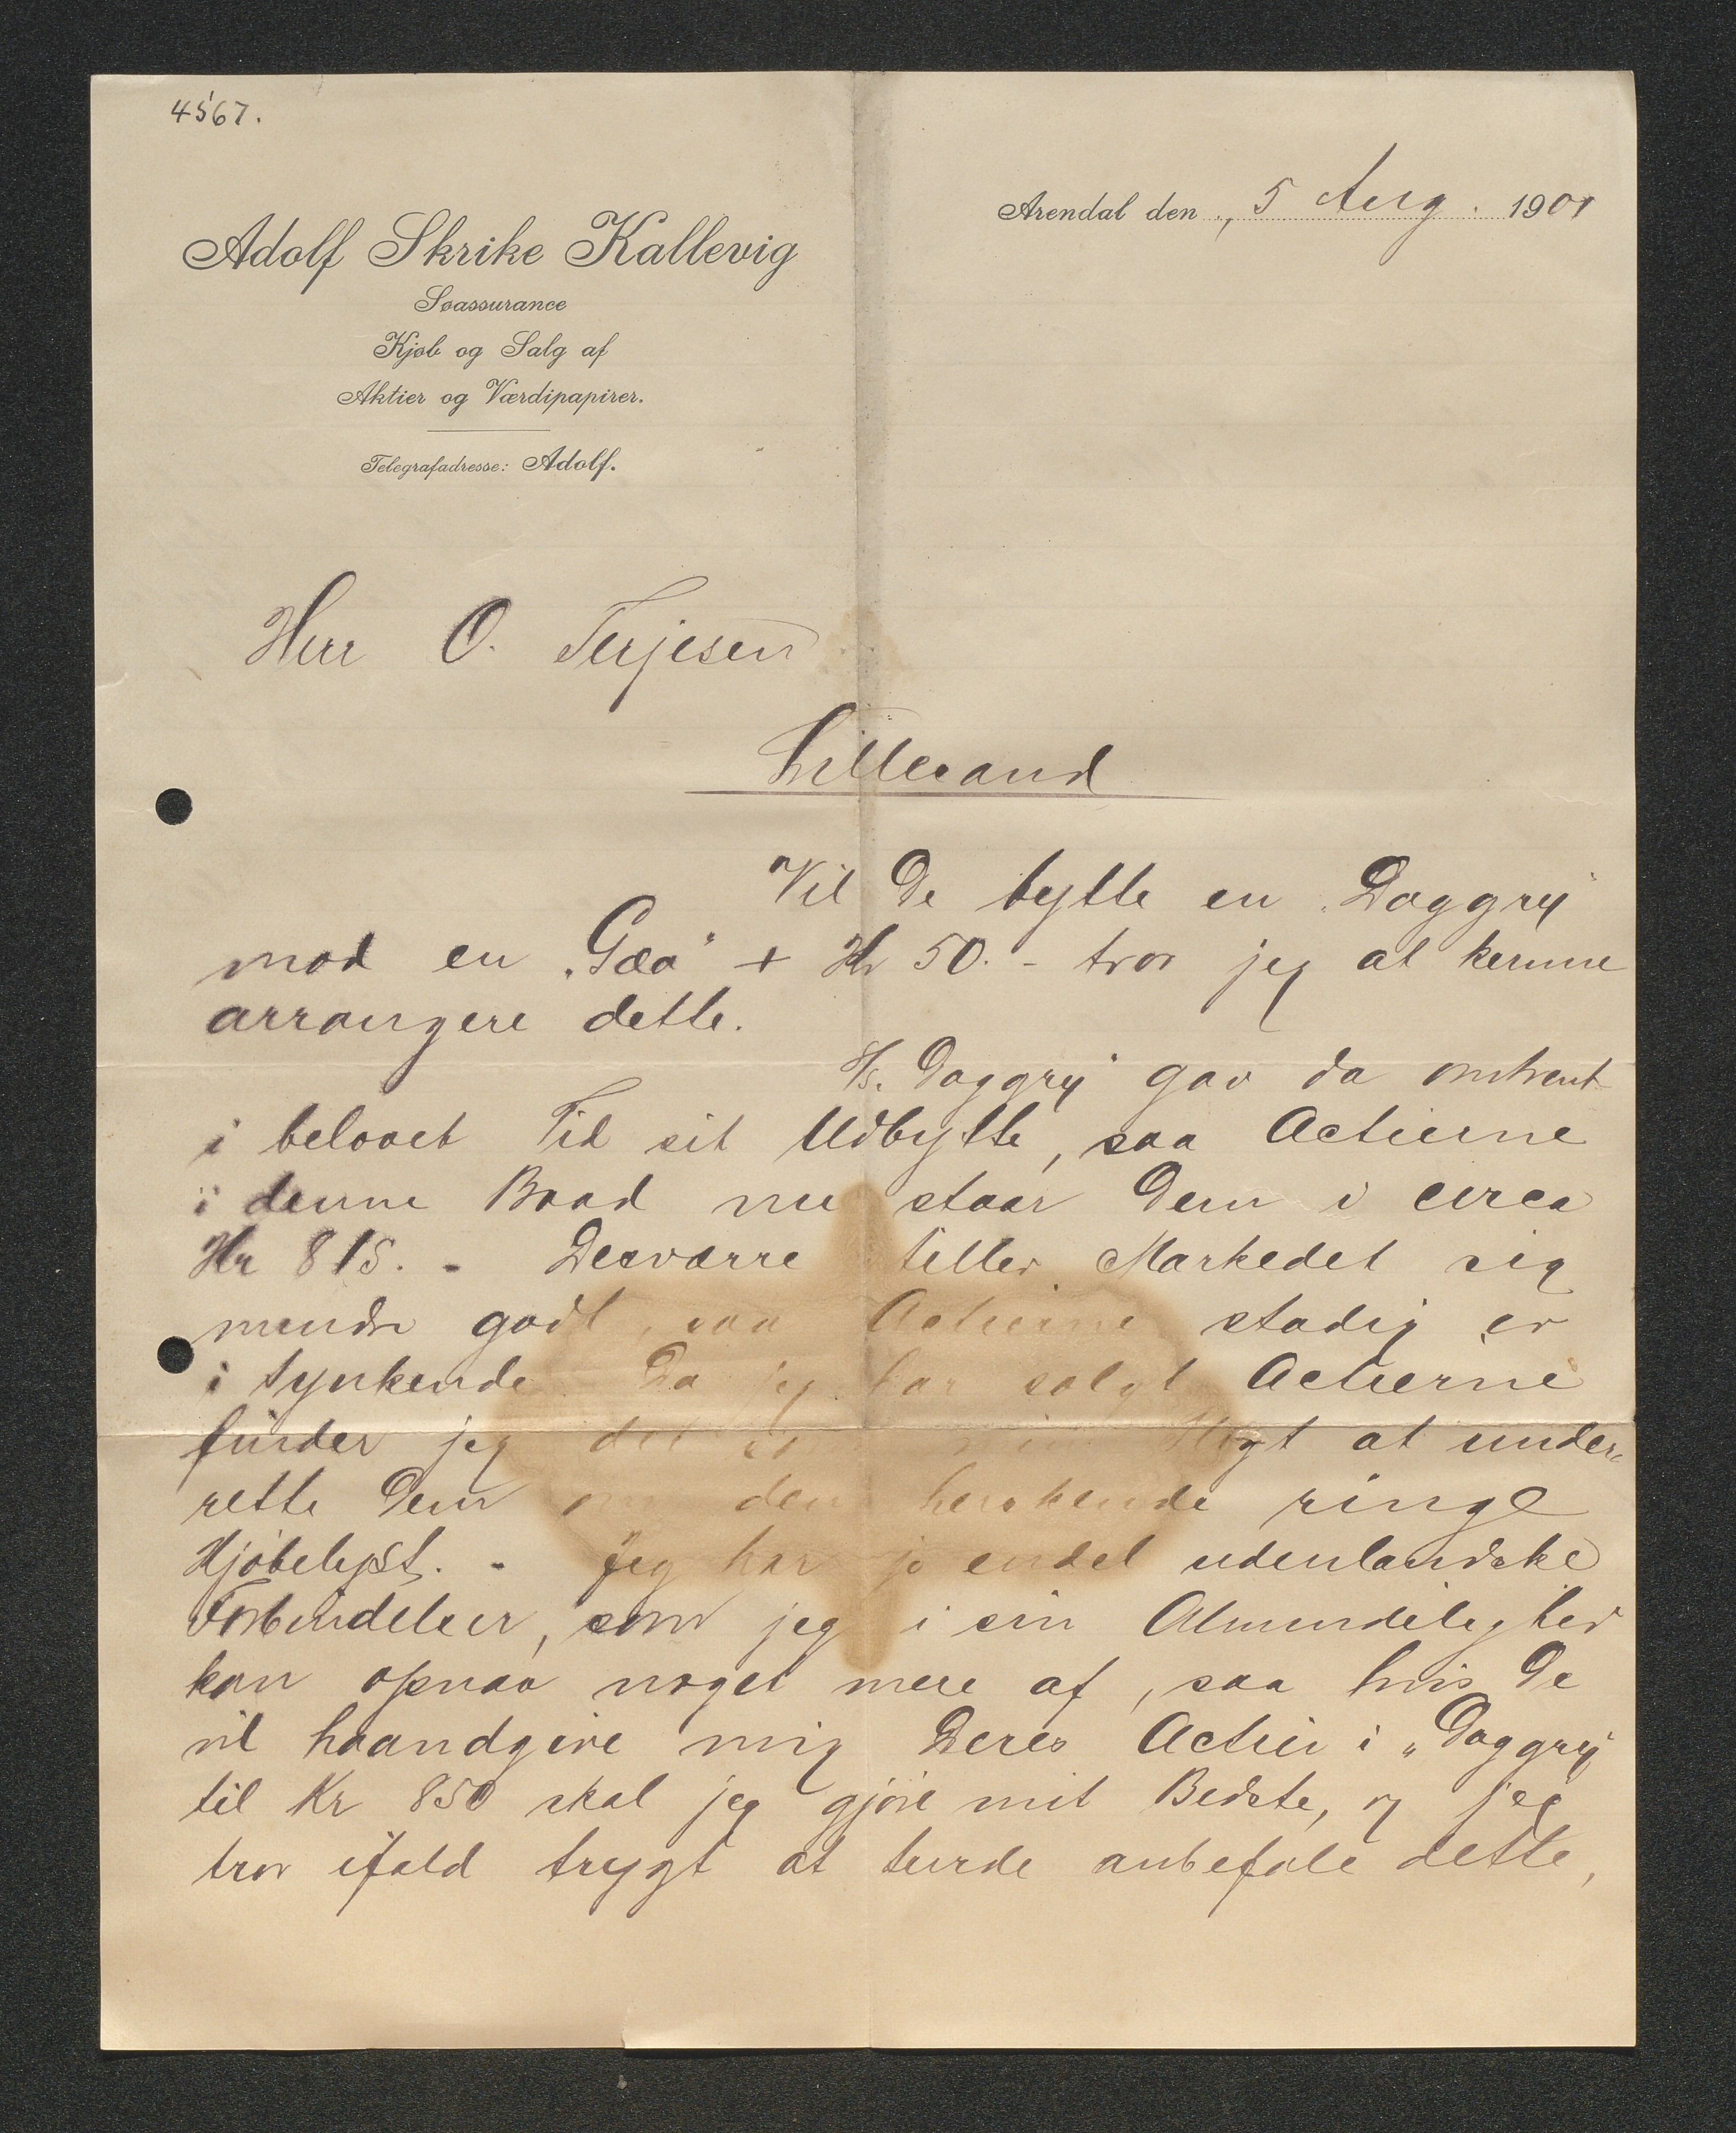 4567.
Arendal den 5 Aug. 1901
Adolf Skrike Kallevig
Søassurance
Kjøb og Salg af
Aktier og Værdipapirer.
Telegrafadresse: Adolf.
Herr O. Terjesen
Lillesand
Vil De bytte en „Daggry
mod en „Gæa" + Kr 50.- tror jeg at kunne
arrangere dette.
S/s. Daggry" gav da omtrent
i belovet Tid sit Udbytte, saa Actierne
i denne Baad nu staar Dem i circa
Kr 815. - Desværre stiller Markedet sig
mindre godt, saa Actierne stadig er
i synkende. Da jeg har solgt Actierne
finder jeg det at under-
rette Dem om den herskende ringe
Kjøbelyst. - Jeg har jo endel udenlandske
Forbindelser, som jeg i sin Almindelighed
kan opnaa noget mere af, saa hvis De
vil haandgive mig Deres Actier i „Daggry"
til Kr 850 skal jeg gjøre mit Bedste, og jeg
tror ifald trygt at turde anbefale dette,